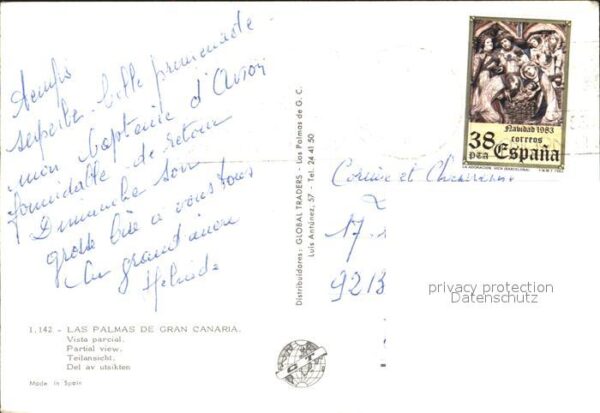 superbe belle promenade
mon baptême d'avion
formidable de retour
Dimanche soir
grosse bise à vous tous
1.142 - LAS PALMAS DE GRAN CANARIA.
Vista parcial.
Partial view.
Teilansicht.
Del av utsikten
Made in Spain
Distribuidores: GLOBAL TRADERS - Los Palmas de G. C.
Luis Antúnez, 57 - Tel. 24 41 50
Navidad 1983
38 correos
PTA España
et
17
9213
privacy protection
Datenschutz